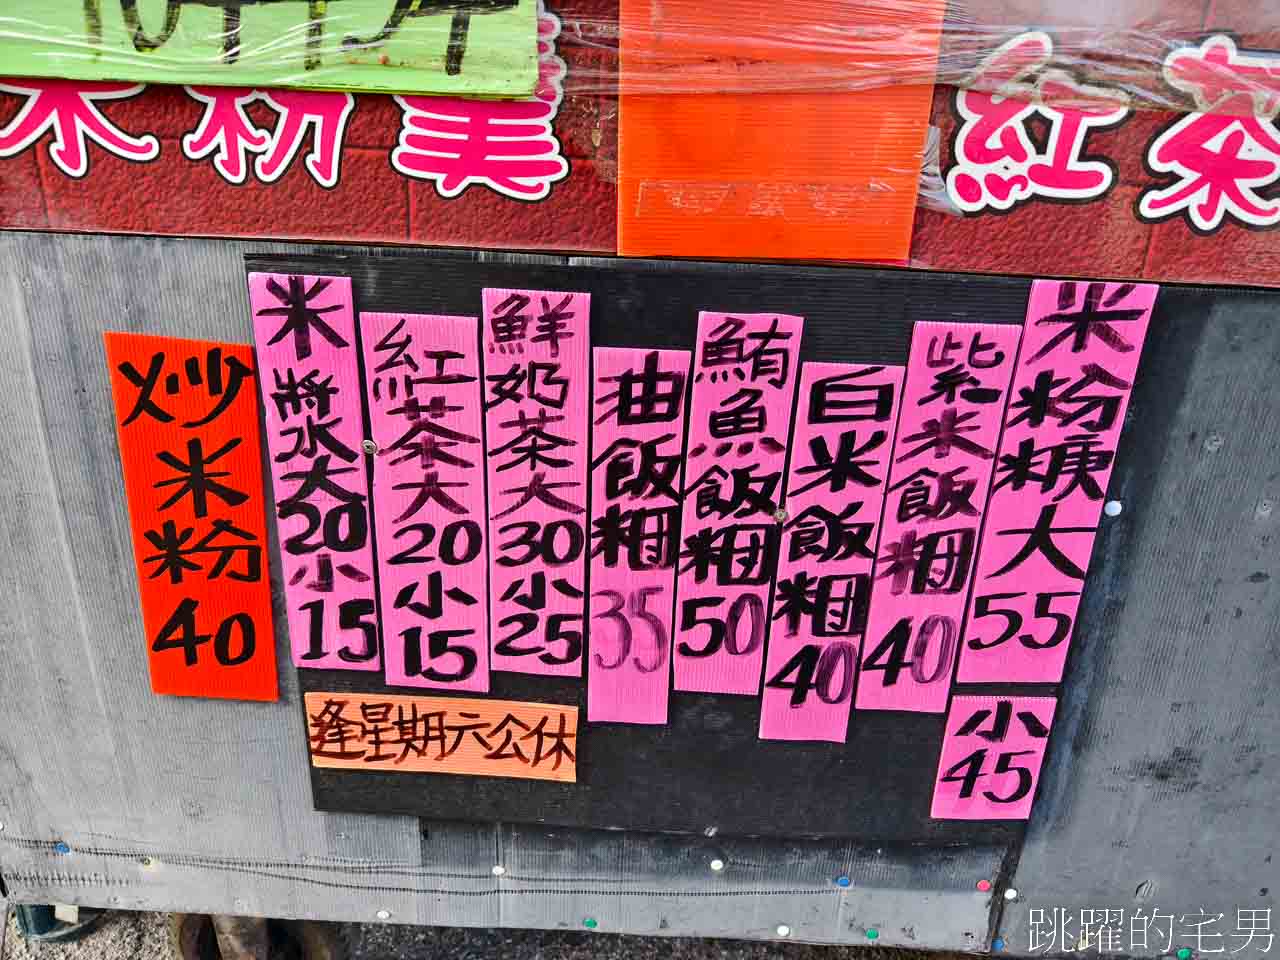 米粉羹
紅茶
米粉糠大55
小45
紫米飯糰40
白米飯糰40
鮪魚飯糰50
油飯糰35
鮮奶茶大30小25
紅茶大20小15
米漿大20小15
炒米粉40
逢星期六公休
跳躍的宅男